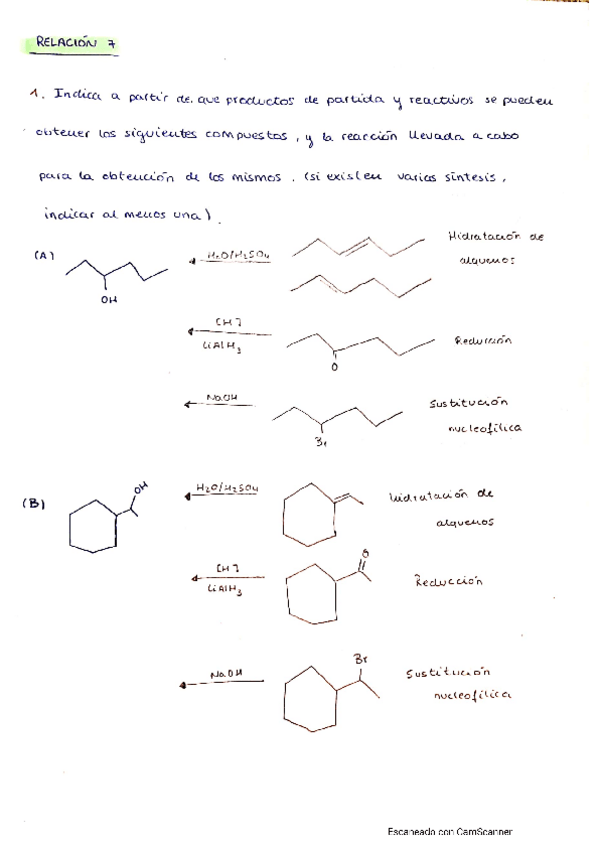 RELACIÓN 7
1. Indica a partir de que productos de partida y reactivos se pueden
obtener los siguientes compuestos, y la reacción llevada a cabo
para la obtención de los mismos. (si existen varias síntesis,
indicar al menos una).
(A)
OH
H2O/H2SO4
Hidratación de
alquenos
[H]
LiAlH3
O
Reducción
NaOH
Br
Sustitución
nucleofílica
(B)
OH
H2O/H2SO4
Hidratación de
alquenos
[H]
LiAlH3
O
Reducción
NaOH
Br
Sustitución
nucleofílica
Escaneado con CamScanner